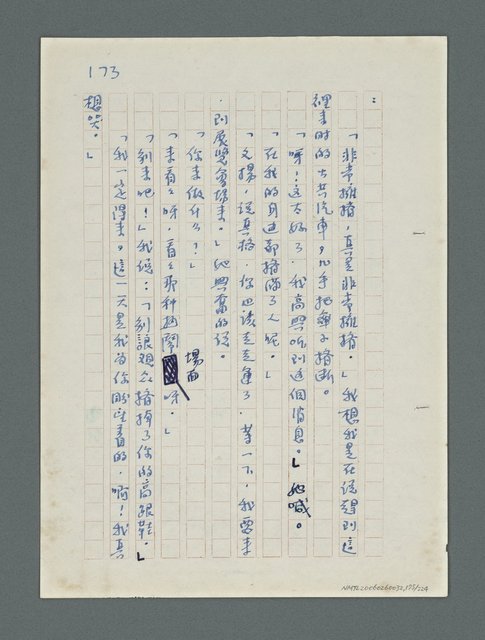 173
：
「非常擁擠，真是非常擁擠。」我想我是在說趕到這
裡來時的公共汽車，几乎把褲子擠斷。
「呀！這太好了，我高興听到這個消息。」她喊。
「在我的身边都擠滿了人呢。」
「文揚，說真格，你也該走走運了，等一下，我要來
到展覽會場來。」她興奮的說。
「你來做什么？」
「來看看呀，看看那种热鬧場面呀。」
「別來吧！」我說：「別讓观众擠掉了你的高跟鞋。」
「我一定得來。這一天是我為你盼望着的，啊！我真
想哭。」
NMTL20060260032,175/224